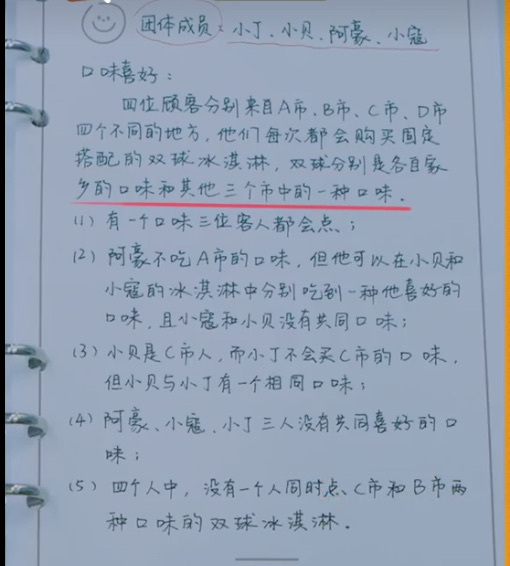 团体成员：小丁、小贝、阿豪、小寇
口味喜好：
四位顾客分别来自A市、B市、C市、D市
四个不同的地方，他们每次都会购买固定
搭配的双球冰淇淋，双球分别是各自家
乡的口味和其他三个市中的一种口味．
(1) 有一个口味三位客人都会点；
(2) 阿豪不吃A市的口味，但他可以在小贝和
小寇的冰淇淋中分别吃到一种他喜好的
口味，且小寇和小贝没有共同口味；
(3) 小贝是C市人，而小丁不会买C市的口味，
但小贝与小丁有一个相同口味；
(4) 阿豪、小寇、小丁三人没有共同喜好的口
味；
(5) 四个人中，没有一个人同时点C市和B市两
种口味的双球冰淇淋．